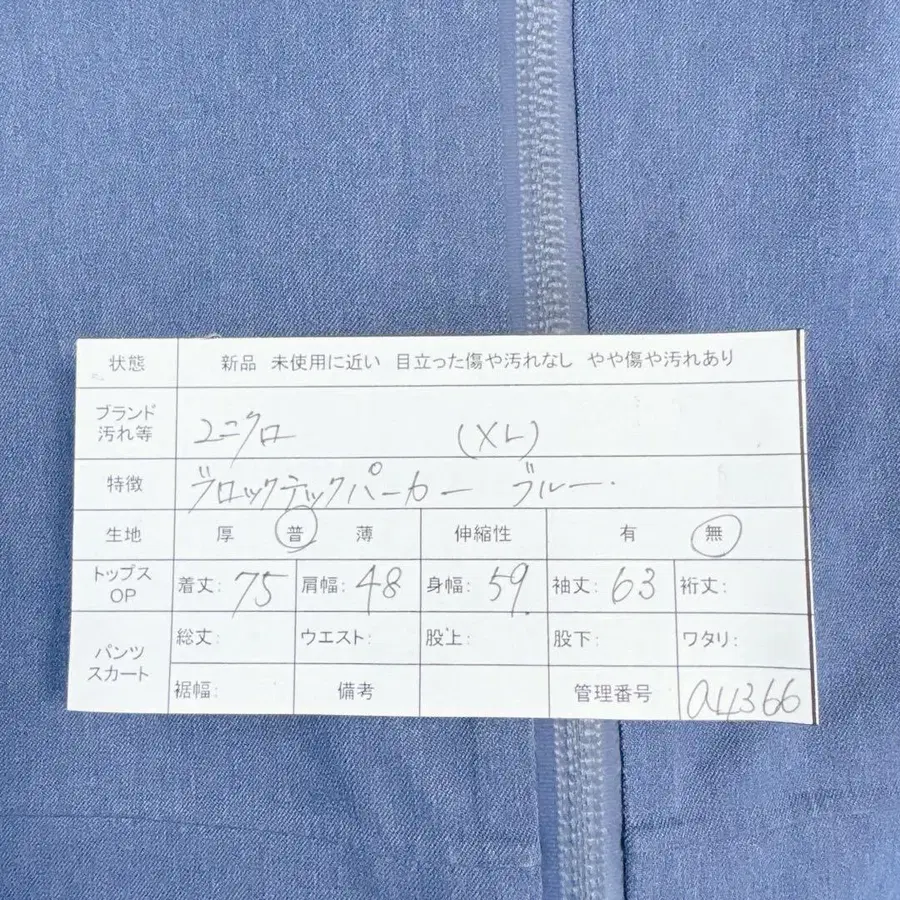 状態 新品 未使用に近い 目立った傷や汚れなし やや傷や汚れあり
ブランド
汚れ等 ユニクロ (XL)
特徴 ブロックテックパーカー ブルー.
生地 厚 普 薄 伸縮性 有 無
トップス
OP 着丈: 75 肩幅: 48 身幅: 59. 袖丈: 63 裄丈:
パンツ
スカート 総丈: ウエスト: 股上: 股下: ワタリ:
裾幅: 備考 管理番号 a4366